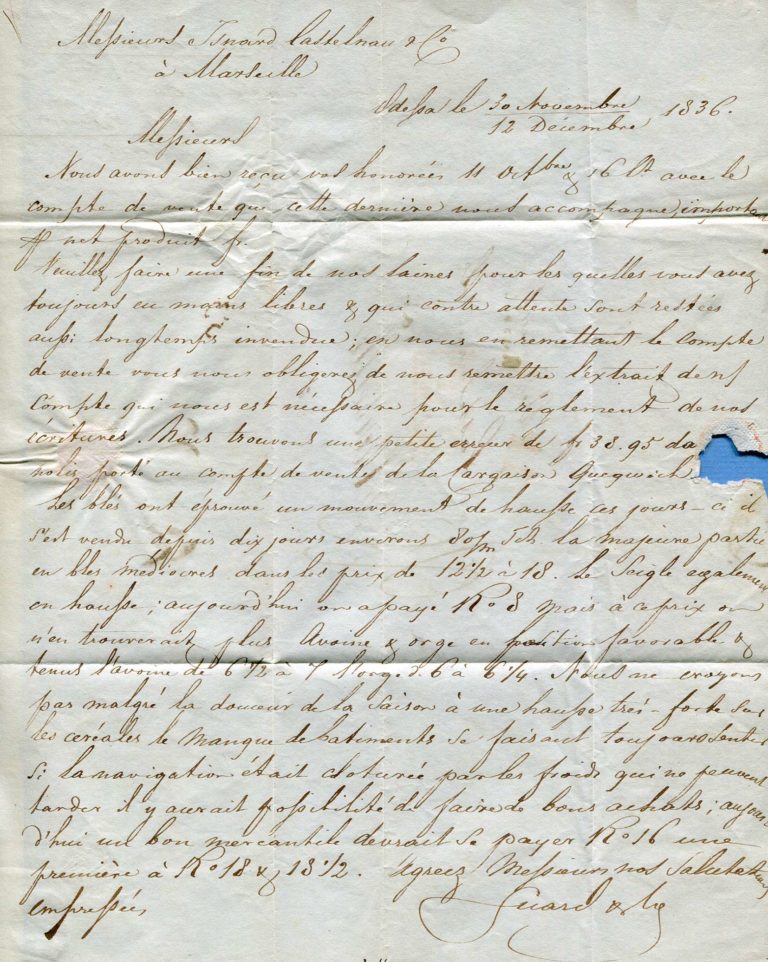 Messieurs Isnard Castelnau & Co
à Marseille
Odessa le 30 Novembre / 12 Décembre 1836.
Messieurs
Nous avons bien reçu vos honorées 11 Octbre & 16 Ct avec le
compte de vente que cette dernière nous accompagne, important
net produit fr.
Veuillez faire une fin de nos laines pour les quelles vous avez
toujours eu mains libres & qui contre attente sont restées
aussi longtemps invendue; en nous en remettant le compte
de vente vous nous obligerez de nous remettre l'extrait de n/
compte qui nous est nécessaire pour le réglement de nos
écritures. Nous trouvons une petite erreur de fr 38.95 da
nolis porté au compte de vente de la Cargaison
Les blés ont éprouvé un mouvement de hausse ces jours-ci il
s'est vendu depuis dix jours environs 80/m Tch la majeure partie
en bles médiocres dans les prix de 12 1/2 à 18. Le Seigle également
en hausse; aujourd'hui on a payé Ro 8 mais à ce prix on
n'en trouverait plus Avoine & orge en position favorable &
tenus l'avoine de 6 1/2 à 7 l'orge d. 6 à 6 1/4. Nous ne croyons
pas malgré la douceur de la saison à une hausse trés-forte sur
les céréales le manque de batiments se faisant toujours sentir
Si la navigation était cloturée par les froids qui ne peuvent
tarder il y aurait possibilité de faire de bons achats; aujour
d'hui un bon mercantile devrait se payer Ro 16 une
première à Ro 18 & 18 1/2. Agréez Messieurs nos Salutations
empressées